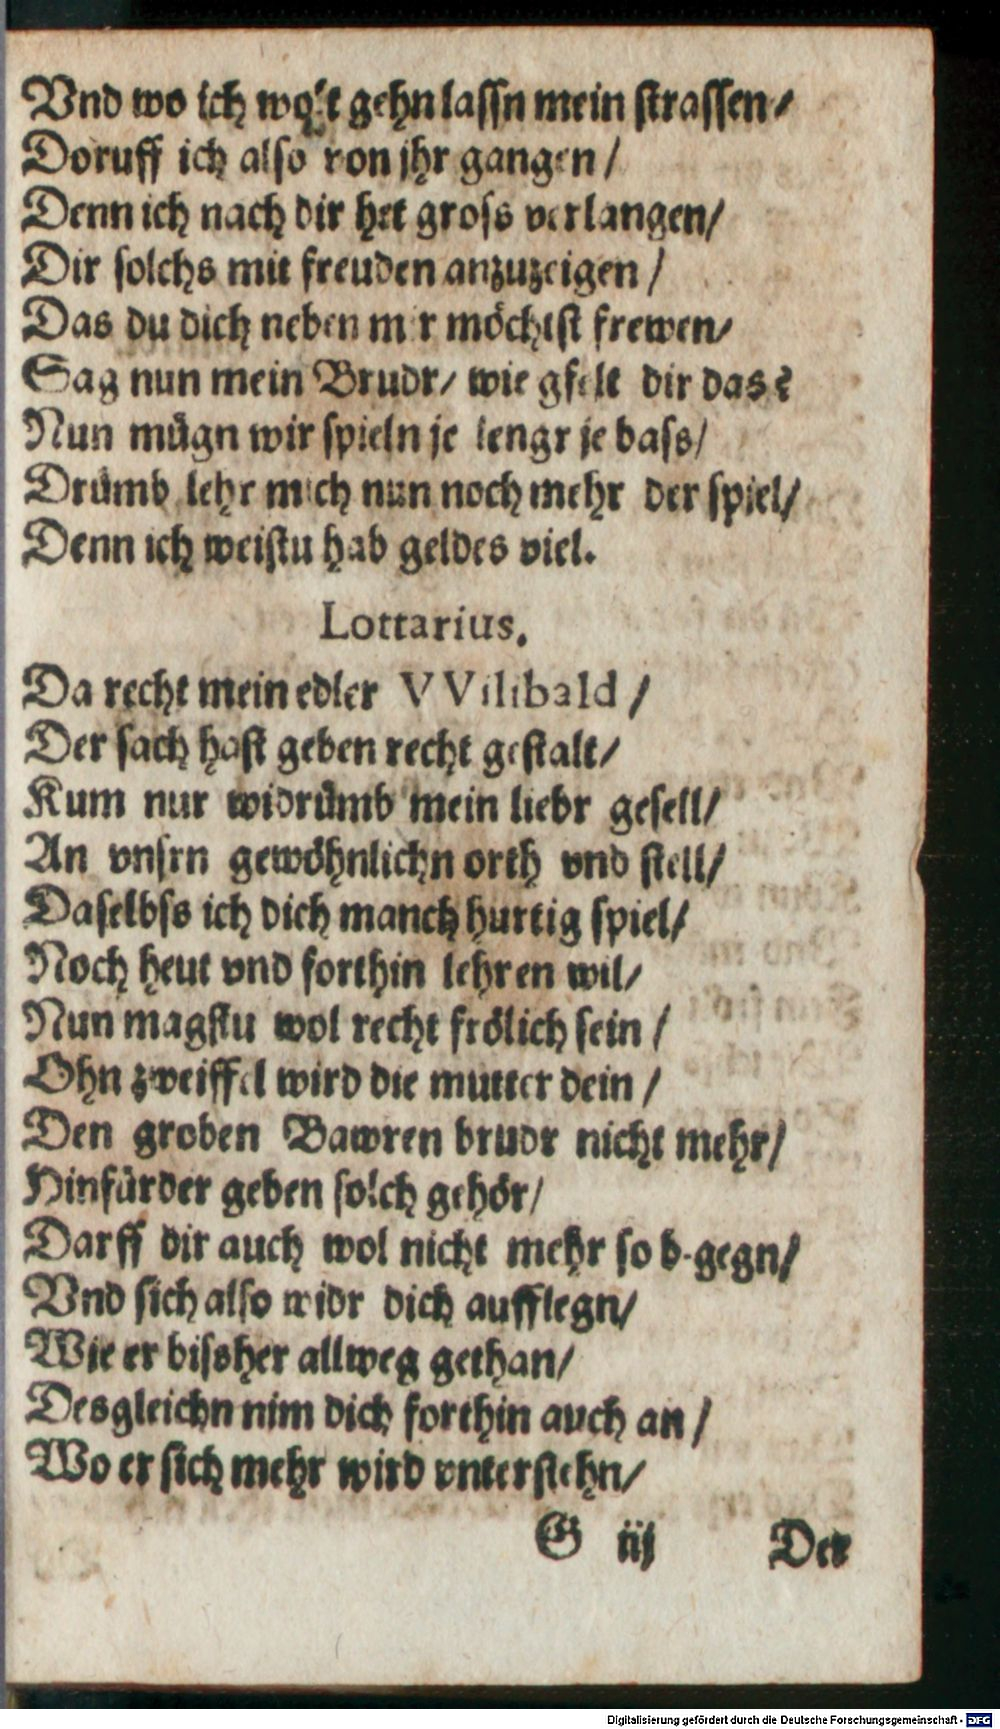 Vnd wo ich wolt gehn lassn mein strassen/
Doruff ich also von jhr gangen/
Denn ich nach dir het gross verlangen/
Dir solchs mit freuden anzuzeigen/
Das du dich neben mir möchtst frewen/
Sag nun mein Brudr/ wie gfelt dir das?
Nun mügn wir spieln je lengr je bass/
Drümb lehr mich nun noch mehr der spiel/
Denn ich weistu hab geldes viel.
Lottarius.
Da recht mein edler VVilibald/
Der sach hast geben recht gestalt/
Kum nur widrümb mein liebr gesell/
An vnsrn gewöhnlichn orth vnd stell/
Daselbss ich dich manch hurtig spiel/
Noch heut vnd forthin lehren wil/
Nun magstu wol recht frölich sein/
Ohn zweiffel wird die mutter dein/
Den groben Bawren brudr nicht mehr/
Hinfürder geben solch gehör/
Darff dir auch wol nicht mehr so begegn/
Vnd sich also widr dich aufflegn/
Wie er bissher allweg gethan/
Desgleichn nim dich forthin auch an/
Wo er sich mehr wird vnterstehn/
G iij Der
Digitalisierung gefördert durch die Deutsche Forschungsgemeinschaft - DFG